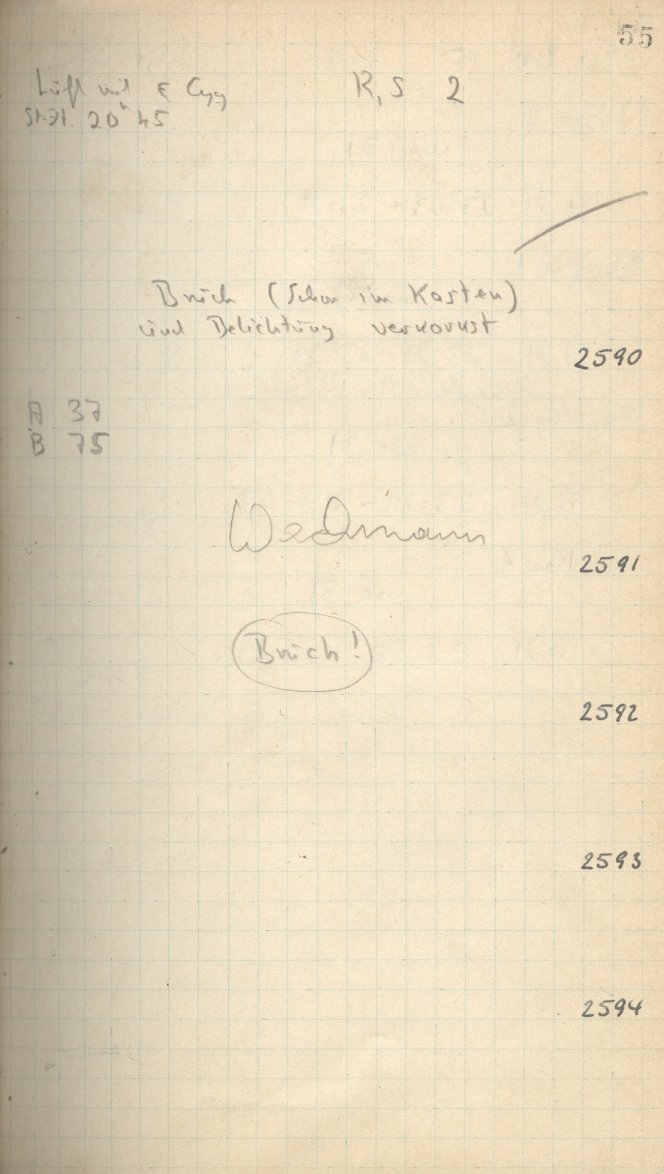 55
Luft mit ε Cyg R, S 2
St.Zt. 20ʰ 45
Bruch (Schon im Kasten)
und Belichtung verkorkst
2590
A 37
B 75
2591
Bruch!
2592
2593
2594